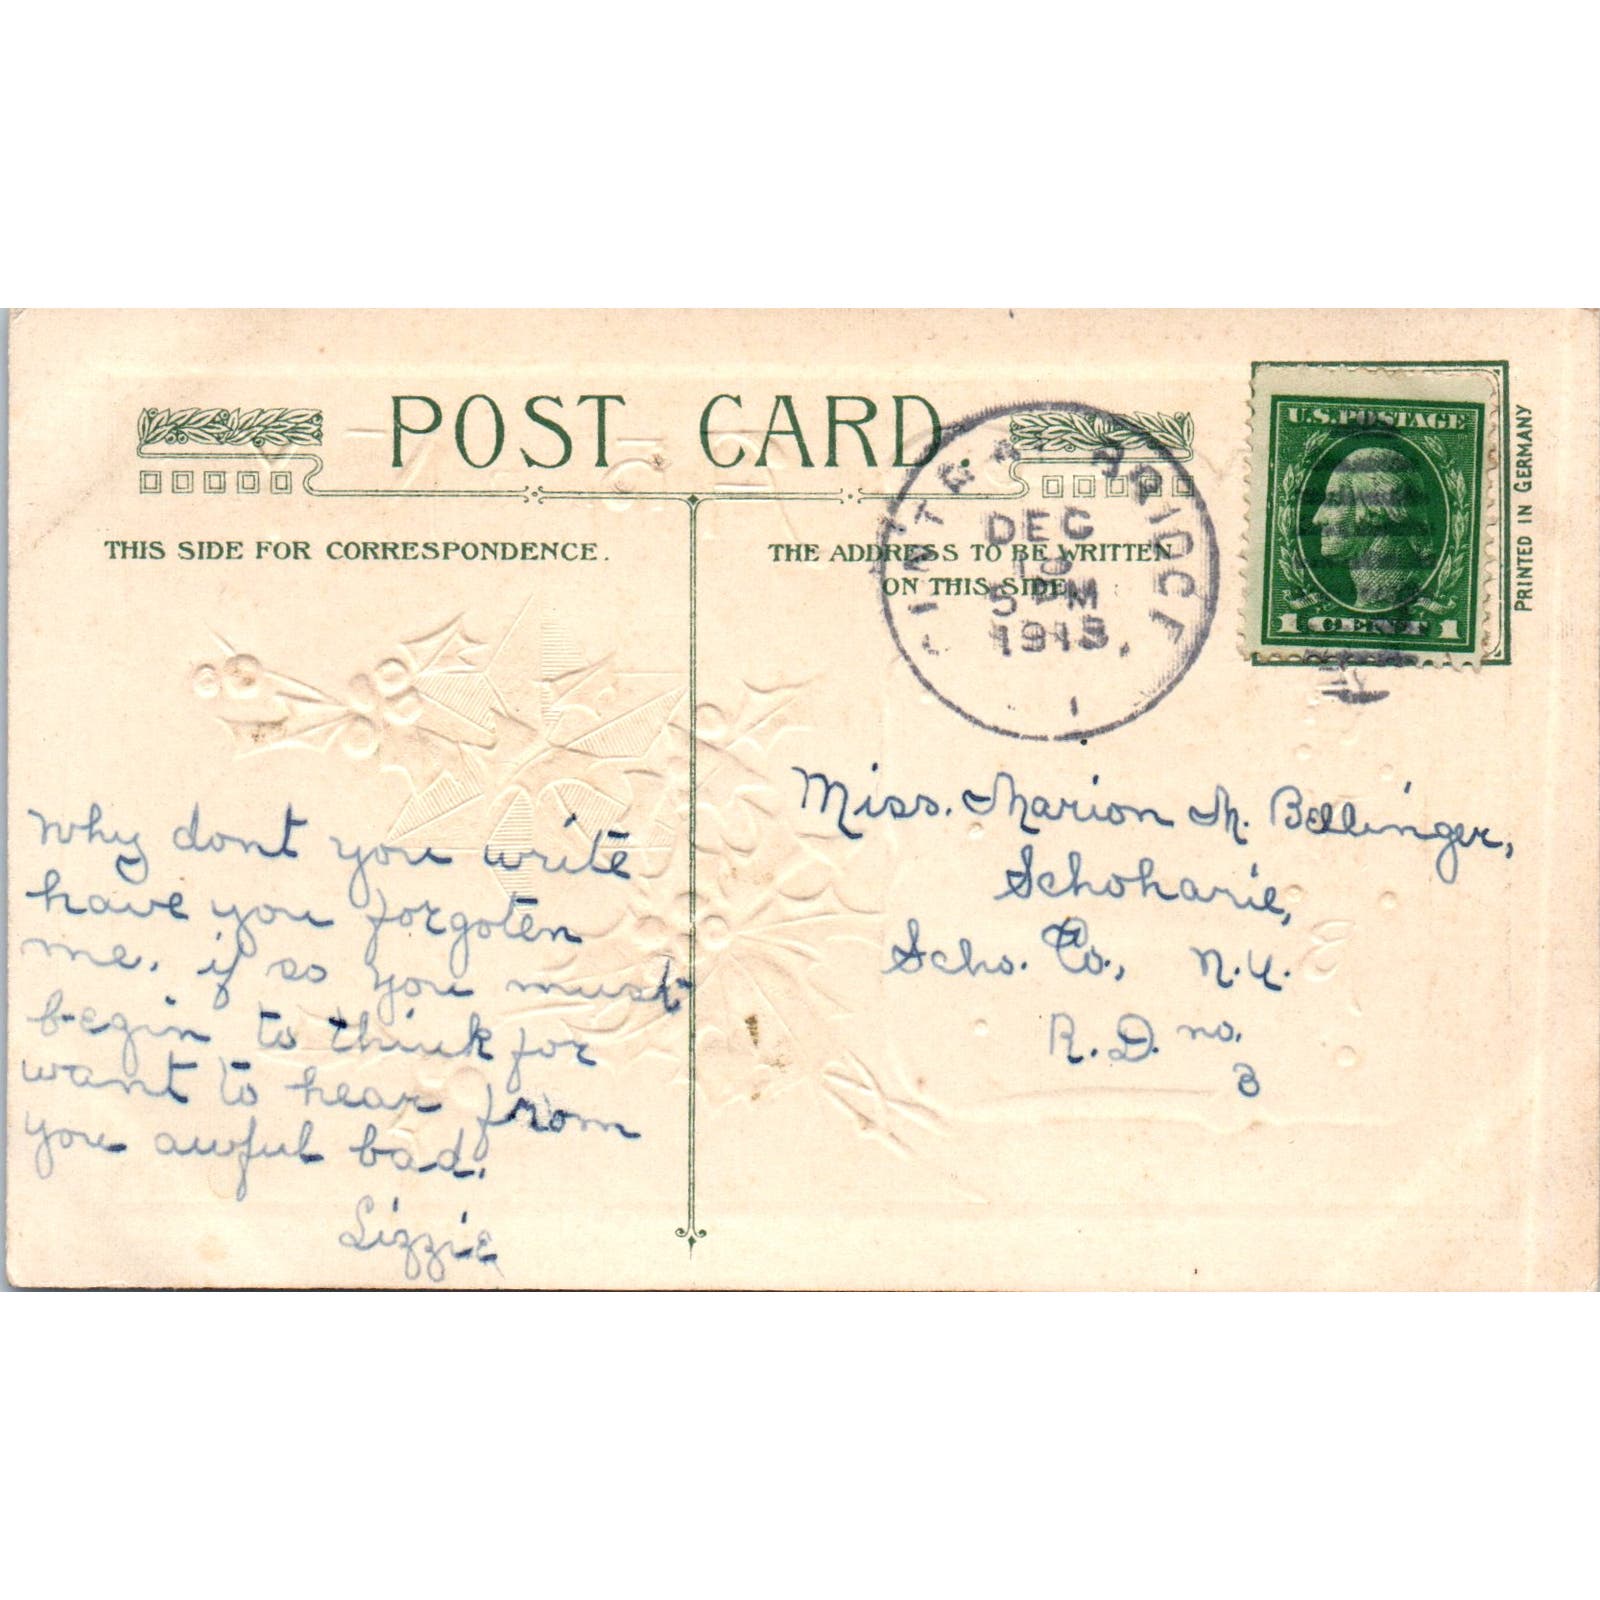 POST CARD
THIS SIDE FOR CORRESPONDENCE.
THE ADDRESS TO BE WRITTEN
ON THIS SIDE.
DEC
5 PM
U.S. POSTAGE
1 CENT 1
PRINTED IN GERMANY
Why dont you write
have you forgoten
me. if so you must
begin to think for
want to hear from
you awful bad.
Lizzie
Miss. Marion M. Bellinger,
Schoharie,
Scho. Co., N.Y.
R.D. no.
3